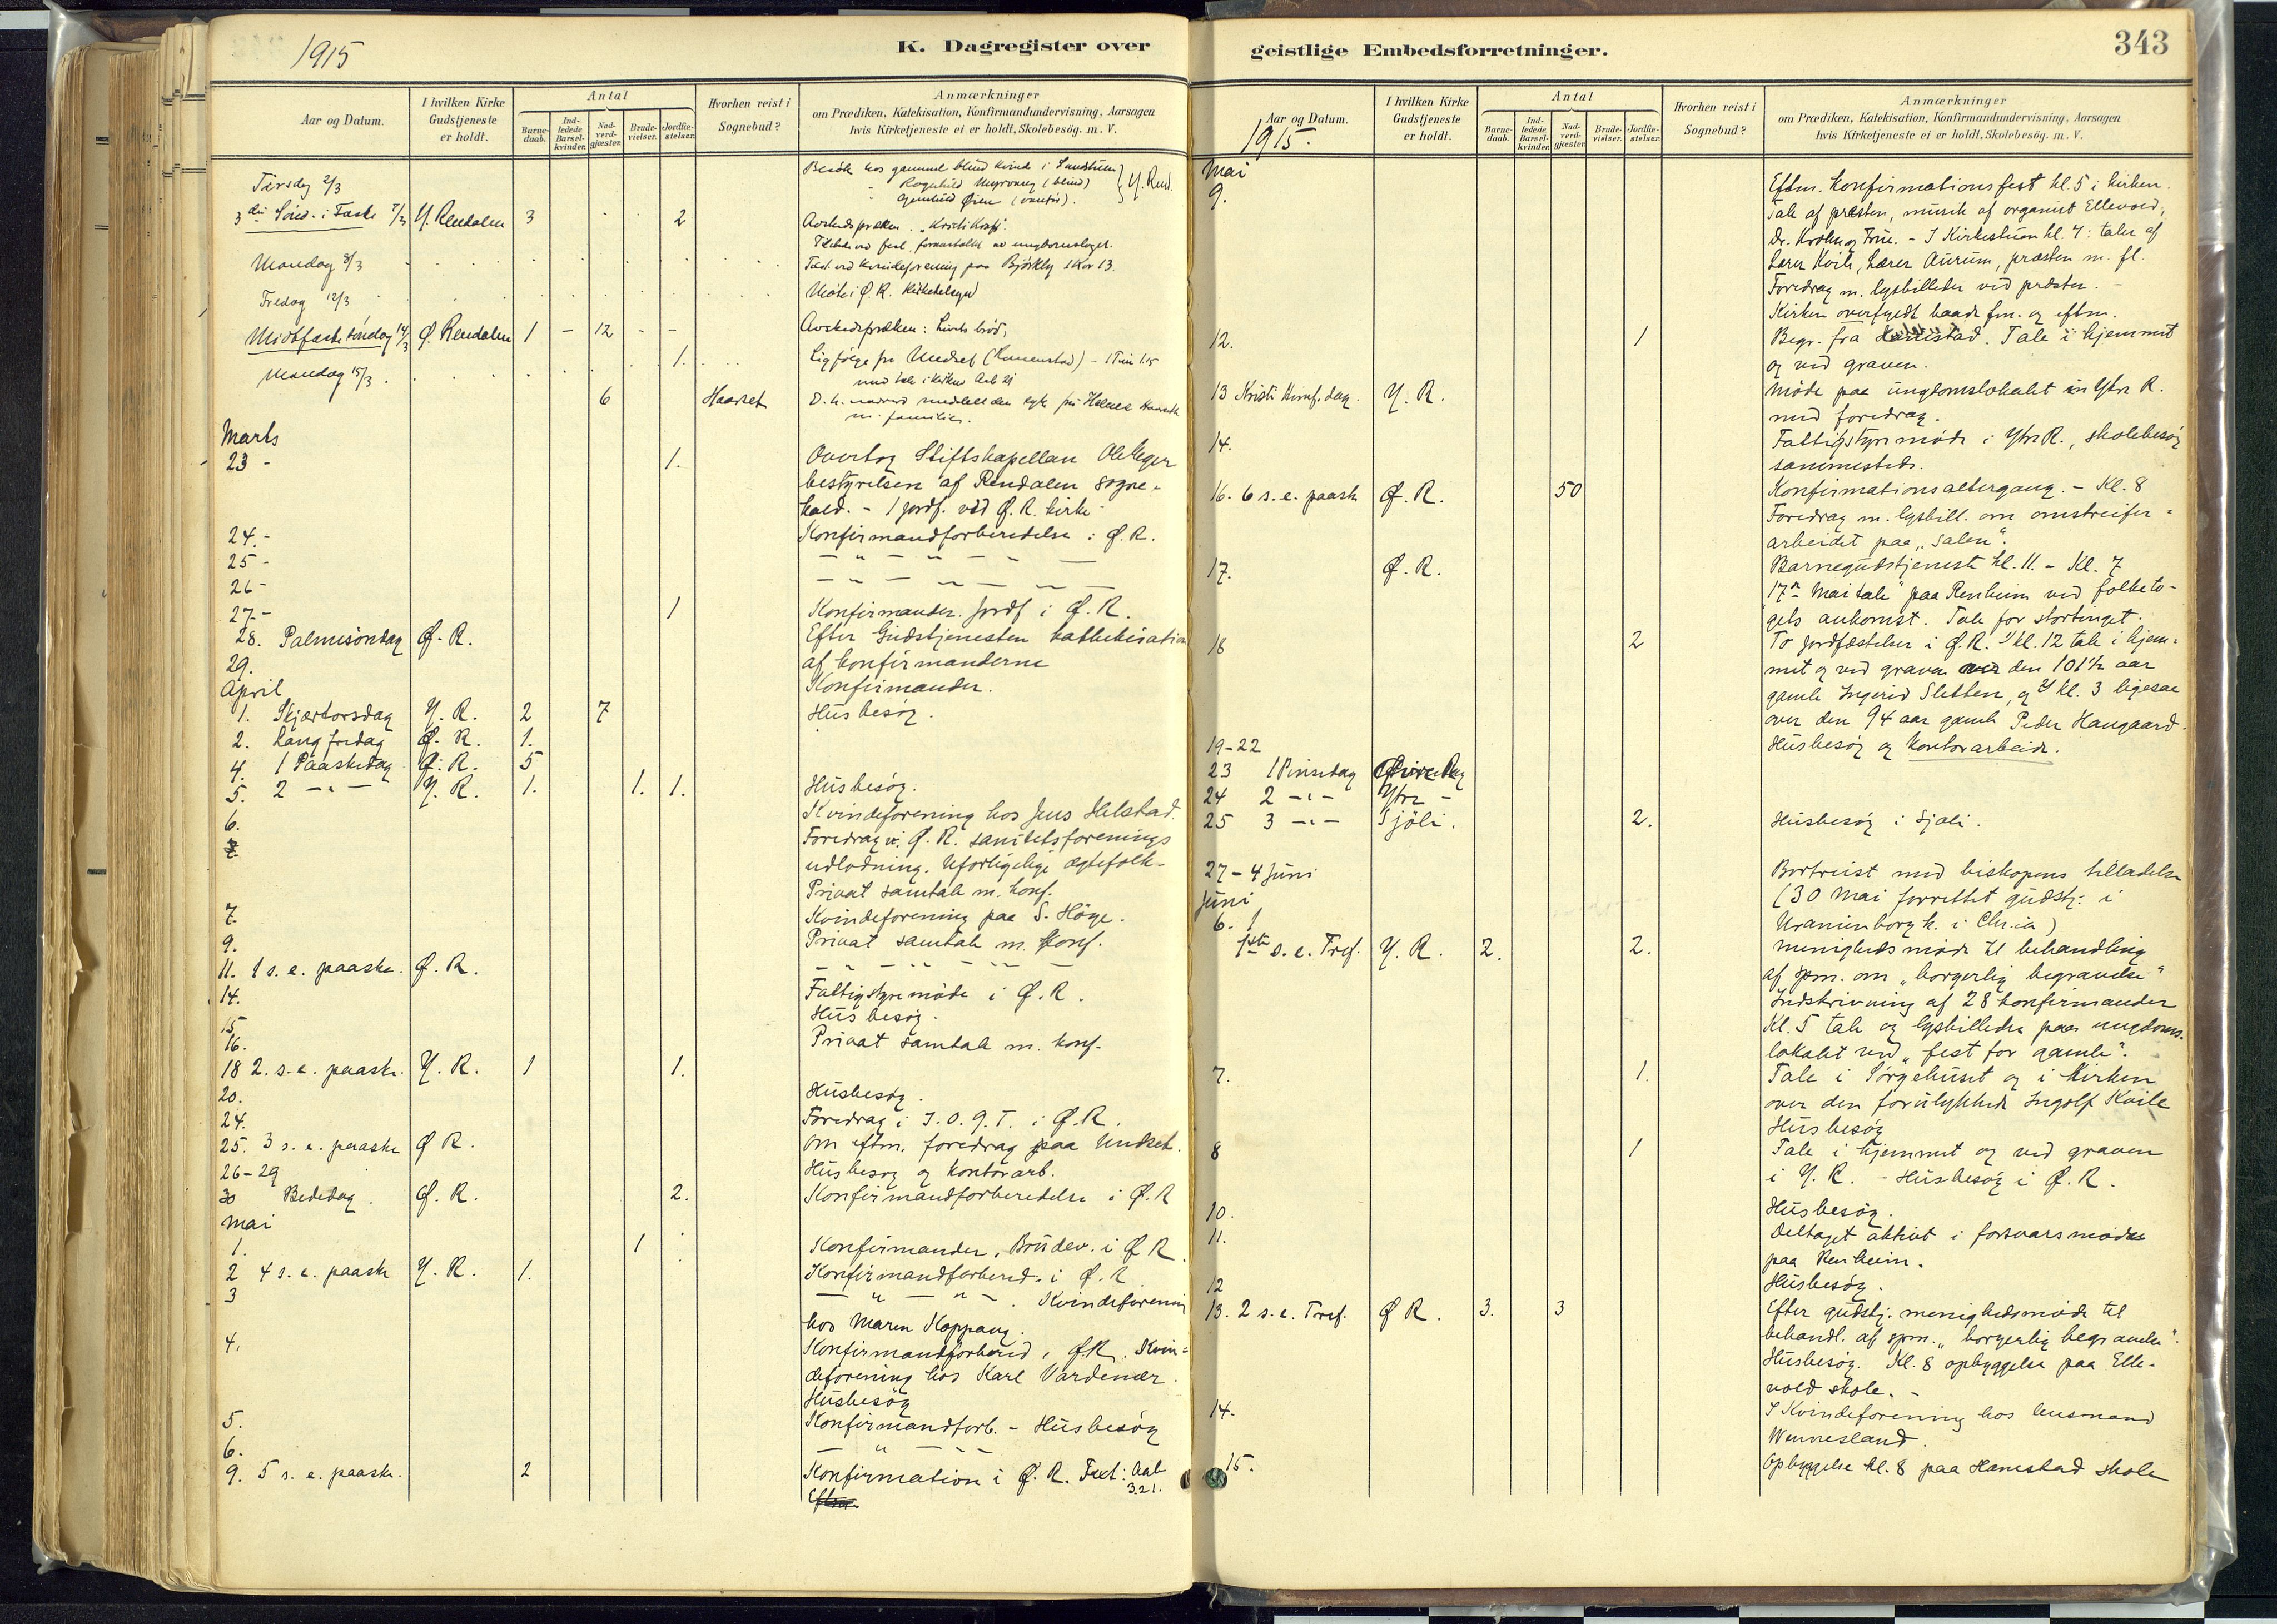 1915
K. Dagregister over
Aar og Datum.
I hvilken Kirke Gudstjeneste er holdt.
Antal
Barnedaab.
Indledede Barselkvinder.
Nadverdgjæster.
Brudevielser.
Jordfæstelser.
Hvorhen reist i Sognebud?
Anmærkninger
om Prædiken, Katekisation, Konfirmandundervisning, Aarsagen
hvis Kirketjeneste ei er holdt, Skolebesög. m. V.
Tirsdag 2/3 Besök hos gammel blind kvinde i
Ragnhild (blind) } Y. Rend.
Gunhild Øien
3die Sönd. i Faste 7/3 Y. Rendalen 3 2 Avskedspræken.
Mandag 8/3 Tale ved kvindeforening paa Björkly 1 Kor 13.
Fredag 12/3 Möte i Ø. R.
Midtfastesöndag 14/3 Ø. Rendalen 1 - 12 - - Avskedspræken: Livets bröd,
1. Ligfölge fra Undset
Mandag 15/3.
6 Haarset
m. familien.
Marts
23 - 1. Overtog Stiftskapellan Ole Eger
bestyrelsen af Rendalen sogne-
kald. - 1 jordf. ved Ø. R. kirke
24.- Konfirmandforberedelse i Ø. R.
25 - — " — " — " —
26 - — " — " — " —
27.- 1 Konfirmander. Jordf i Ø. R.
28. Palmesöndag Ø. R. Efter Gudstjenesten kathekisation
29. af konfirmanderne
April Konfirmander.
1. Skjærtorsdag Y. R. 2 7 Husbesög.
2. Langfredag Ø. R. 1.
4. 1 Paaskedag Ø. R. 5
5. 2 — " — Y. R. 1. 1. 1. Husbesög.
6. Kvindeforening hos Jens Helstad.
7. Foredrag v. Ø. R. sanitetsforenings
udlodning. Uforligelige ægtefolk.
Privat samtale m. konf.
7. Kvindeforening paa S. Höge.
9. Privat samtale m. konf.
11. 1 s. e. paaske. Ø. R. — " — " — " —
14. Fattigstyremöde i Ø. R.
15. Husbesög.
16. Privat samtale m. konf.
18 2. s. e. paaske. Y. R. 1 1.
20. Husbesög.
24. Foredrag i I. O. G. T. i Ø. R.
25. 3 s. e. paaske Ø R. Om eftm. foredrag paa Undset.
26-29 Husbesög og kontorarb.
30 Bededag. Ø. R. 2. Konfirmandforberedelse i Ø. R
Mai
1. 1 Konfirmander. Brudev. i Ø R.
2 4 s. e. paaske Y. R. 1. Konfirmandforbered. i Ø. R
3 — " — " — . Kvindeforening
hos Maren Koppang.
4. Konfirmandforbered. i Ø.R. Kvin-
deforening hos Karl Vardenær.
Husbesög
5. Konfirmandforb. - Husbesög
6. — " — " —
9. 5 s. e. paaske. 2 Konfirmation i Ø. R. Text: Aab
3.21.
Eftm.
geistlige Embedsforretninger.
343
Aar og Datum.
1915.
I hvilken Kirke Gudstjeneste er holdt.
Antal
Barnedaab.
Indledede Barselkvinder.
Nadverdgjæster.
Brudevielser.
Jordfæstelser.
Hvorhen reist i Sognebud?
Anmærkninger
om Prædiken, Katekisation, Konfirmandundervisning, Aarsagen
hvis Kirketjeneste ei er holdt, Skolebesög. m. V.
Mai
9. Eftm. Konfirmationsfest kl. 5 i kirken.
Tale af præsten, musik af organist Ellevold,
Dr. Krohn og Frue. - I Kirkestuen kl. 7: taler af
Lærer Kvile, Lærer Aurum, præsten m. fl.
Foredrag m. lysbilleder ved præsten. -
Kirken overfyldt baade fm. og eftm.
12. 1 Begr. fra . Tale i hjemmet
og ved graven.
13 Kristi Himf. dag. Y. R. Möde paa ungdomslokalet i Ytre R.
med foredrag.
14. Fattigstyremöde i Ytre R., skolebesög
sammesteds.
16. 6 s. e. paaske Ø. R. 50 Konfirmationsaltergang. - Kl. 8
Foredrag m. lysbill. om omstreifer-
arbeidet paa „Salen".
17. Ø. R. Barnegudstjeneste kl. 11. - Kl. 7
17de Mai tale paa Renheim ved folketo-
gets ankomst. Tale for stortinget.
18 2 To jordfæstelser i Ø. R. 1) kl. 12 tale i hjem-
met og ved graven over den 101½ aar
gamle Ingerid Sletten, og 2) kl. 3 ligesaa
over den 94 aar gamle Peder Haugaard.
19-22 Husbesög og kontorarbeide.
23 1 Pinsedag Øvre Rdg
24 2 — " — Ytre -
25 3 — " — Sjöli. 2. Husbesög i Sjöli.
27 - 4 Juni Bortreist med biskopens tilladelse
Juni (30 Mai forrettet gudstj. i
Uranienborg k. i Chr.ia)
6. 1ste s. e. Tref. Y. R. 2. 2. Menighedsmöde til behandling
af spm. om „borgerlig begravelse"
Indskrivning af 28 konfirmander
Kl. 5 tale og lysbilleder paa ungdoms-
lokalet ved „fest for gamle".
7. 1. Tale i Sörgehuset og i kirken
over den forulykkede Ingolf Kvile
Husbesög
8 1 Tale i hjemmet og ved graven
i Y. R. - Husbesög i Ø. R.
10. Husbesög.
11. Deltaget aktivt i forsvarsmöde
paa Renheim.
12 Husbesög.
13. 2 s. e. Tref. Ø R. 3. 3 Efter gudstj. menighedsmöde til
behandl. af spm. „borgerlig begravelse".
Husbesög. Kl. 8 opbyggelse paa Elle-
vold skole. -
14. I Kvindeforening hos lensmand
Wennesland.
15. Opbyggelse kl. 8 paa Hanestad skole